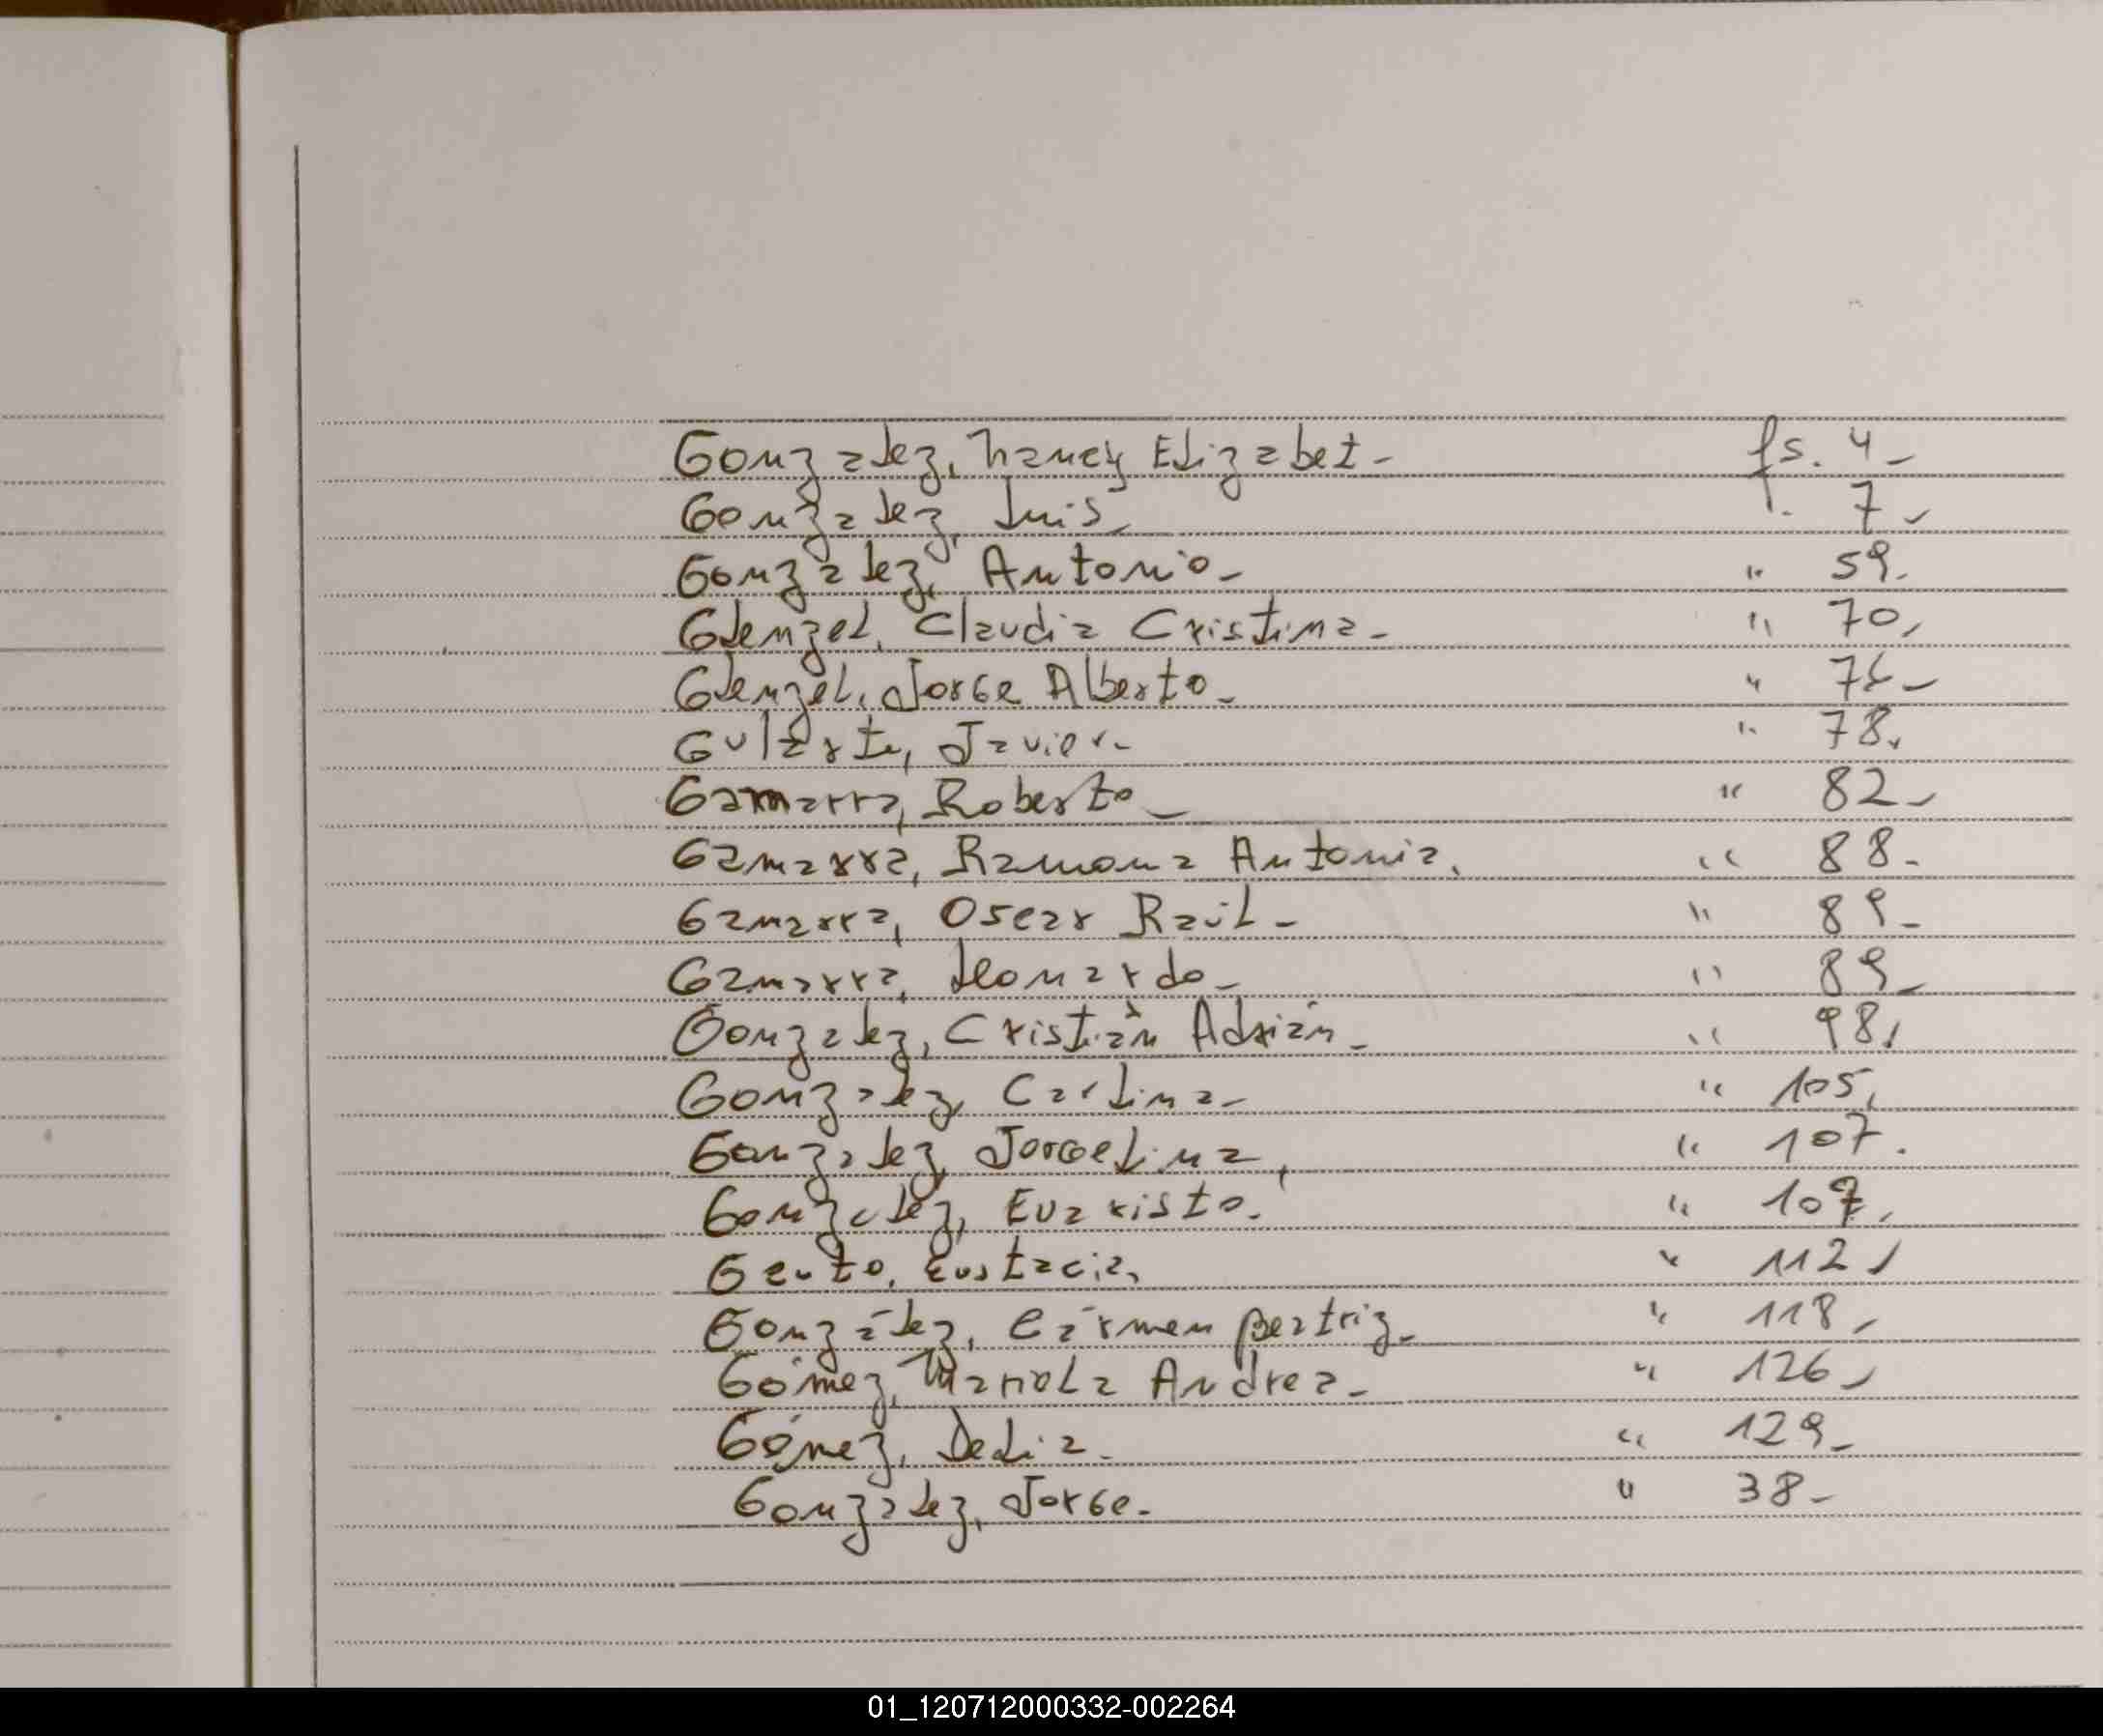 Gonzalez, Nancy Elizabet- fs. 4-
Gonzalez, Luis- ". 7-
Gonzalez, Antonio- " 59.
Glenzel, Claudia Cristina- " 70,
Glenzel, Jorge Alberto- " 76-
Gularte, Javier- " 78,
Gamarra, Roberto- " 82-
Gamarra, Ramona Antonia. " 88-
Gamarra, Oscar Raúl- " 89-
Gamarra, Leonardo- " 89-
Gonzalez, Cristián Adrián- " 98,
Gonzalez, Carlina- " 105,
Gonzalez, Jorgelina, " 107.
Gonzalez, Evaristo. " 107,
Eustacia, " 112,
González, Cármen Beatriz- " 118,
Gómez, Mariola Andrea- " 126-
Gómez, Delia- " 129-
González, Jorge- " 38-
01_120712000332-002264